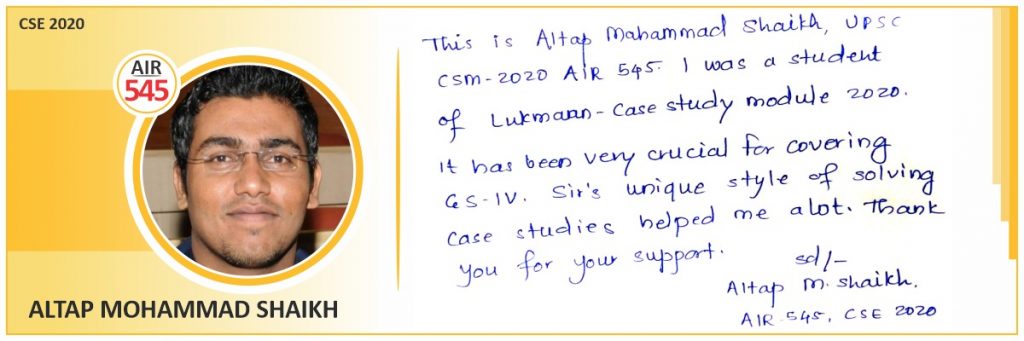 CSE 2020
AIR
545
ALTAP MOHAMMAD SHAIKH
This is Altap Mahammad Shaikh, UPSC
CSM-2020 AIR 545. I was a student
of Lukmaan-Case study module 2020.
It has been very crucial for covering
GS-IV. Sir's unique style of solving
case studies helped me alot. Thank
you for your support.
sd/-
Altap M. Shaikh.
AIR 545, CSE 2020